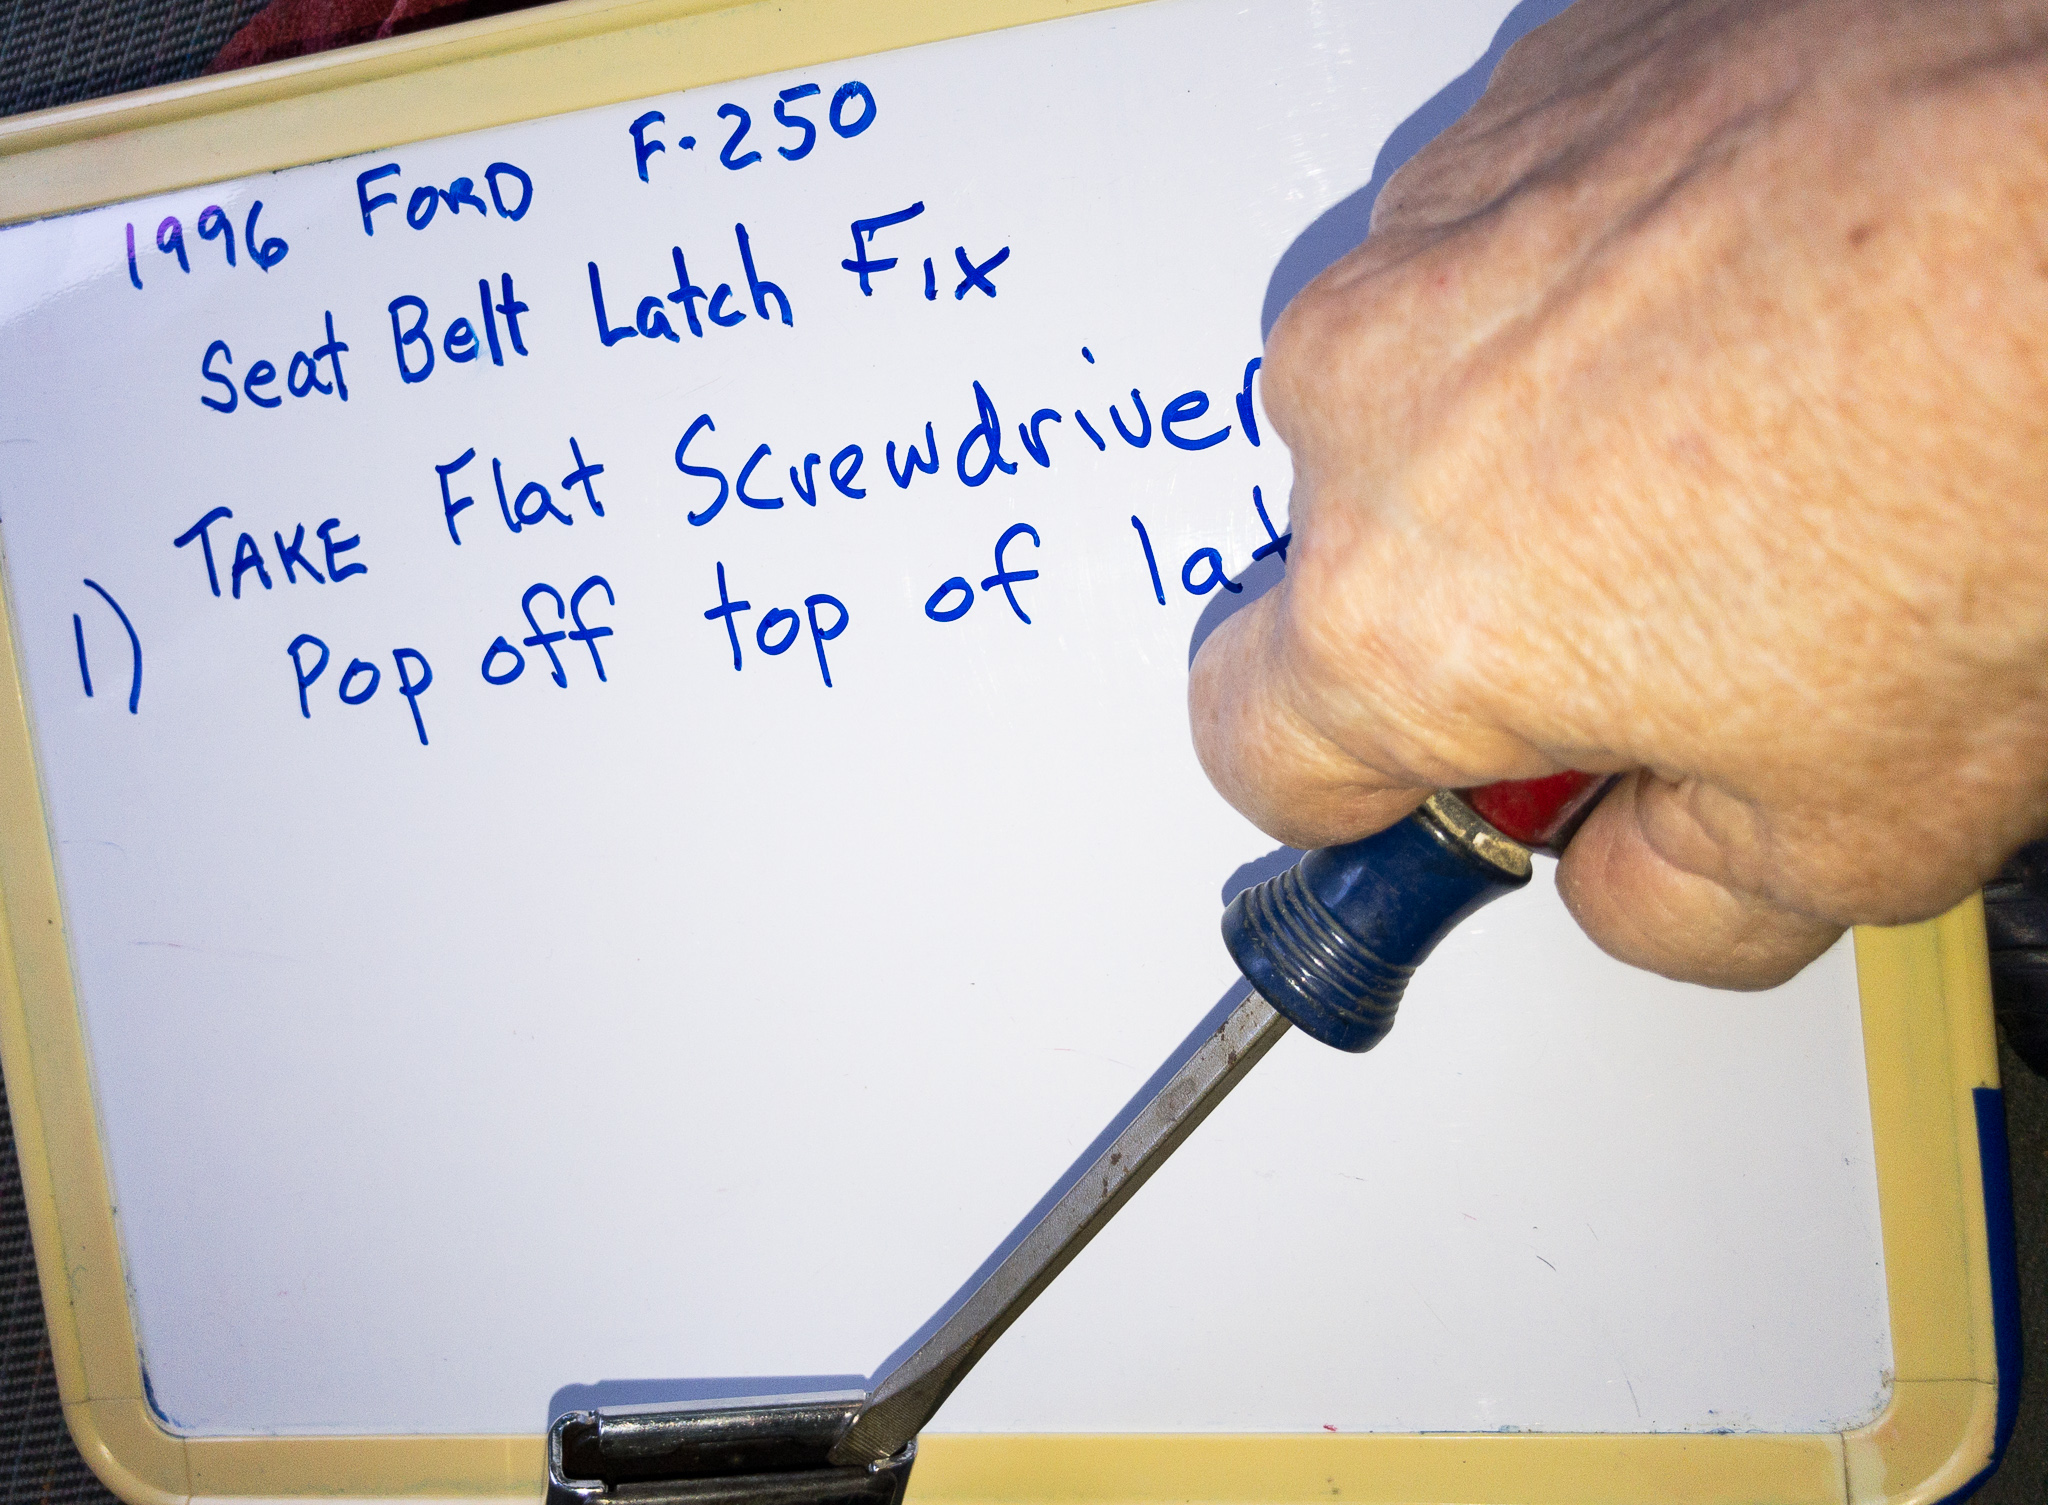 1996 FORD F-250
Seat Belt Latch Fix
1) TAKE Flat Screwdriver
Pop off top of lat